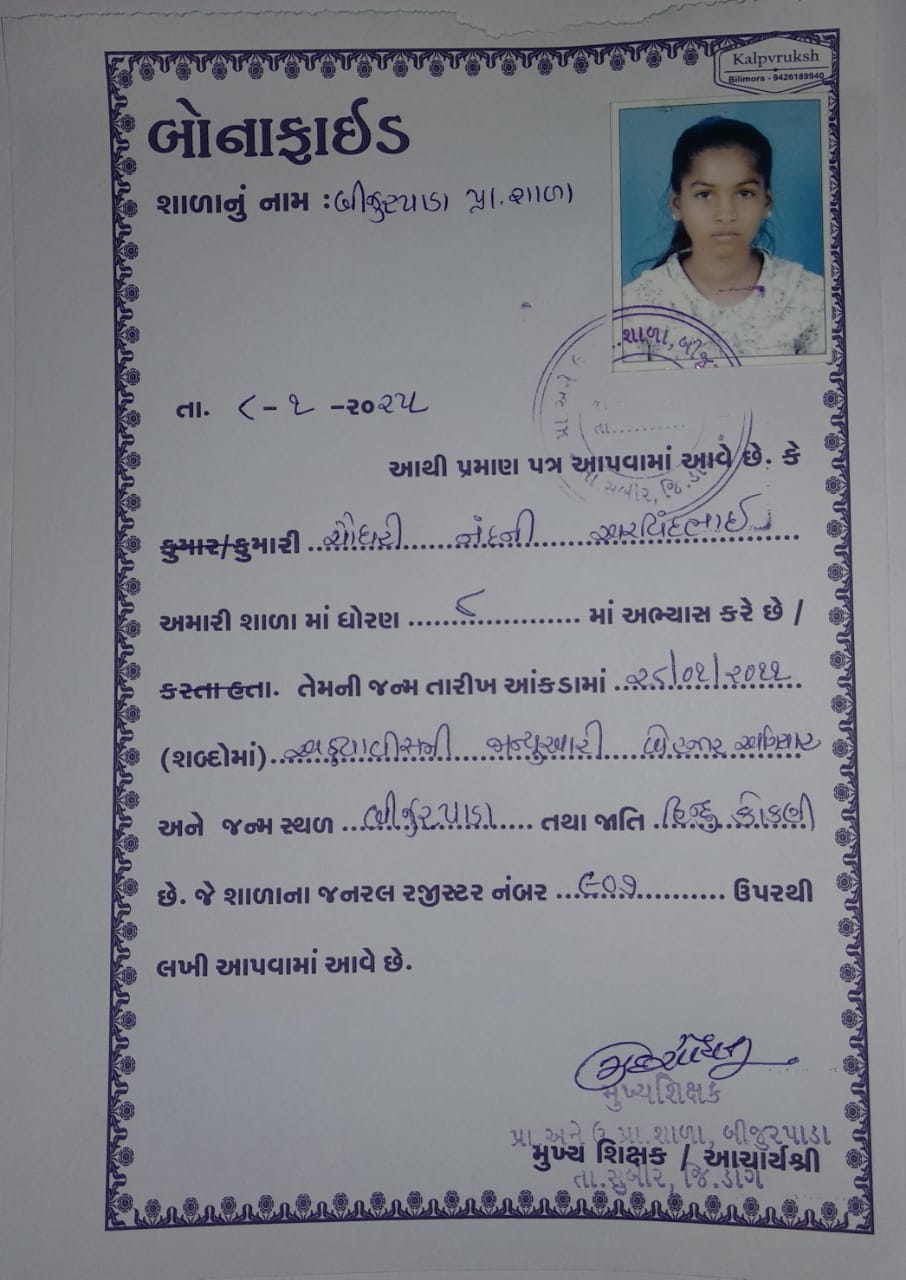 Kalpvruksh
Bilimora - 9426189940
બોનાફાઈડ
શાળાનું નામ : બીજુરપાડા પ્રા. શાળા
શાળા, બીજુ
પ્રા અને
તા..........
તા. ૮ - ૧ - ૨૦૨૫
સુબીર, જિ.ડાં
આથી પ્રમાણ પત્ર આપવામાં આવે છે. કે
કુમાર/કુમારી ..ચૌધરી......નંદની......અરવિંદભાઈ....
અમારી શાળા માં ધોરણ .......૮............... માં અભ્યાસ કરે છે /
કરતા હતા. તેમની જન્મ તારીખ આંકડામાં ..૨૮/૦૧/૨૦૧૧..
(શબ્દોમાં)..અઠ્યાવીસમી જાન્યુઆરી બે હજાર અગિયાર
અને જન્મ સ્થળ ...બીજુરપાડા.... તથા જાતિ .હિન્દુ કોકણી
છે. જે શાળાના જનરલ રજીસ્ટર નંબર ...૯૦૭............ ઉપરથી
લખી આપવામાં આવે છે.
મુખ્યશિક્ષક
પ્રા.અને ઉ.પ્રા.શાળા, બીજુરપાડા
મુખ્ય શિક્ષક / આચાર્યશ્રી
તા.સુબીર, જિ.ડાંગ